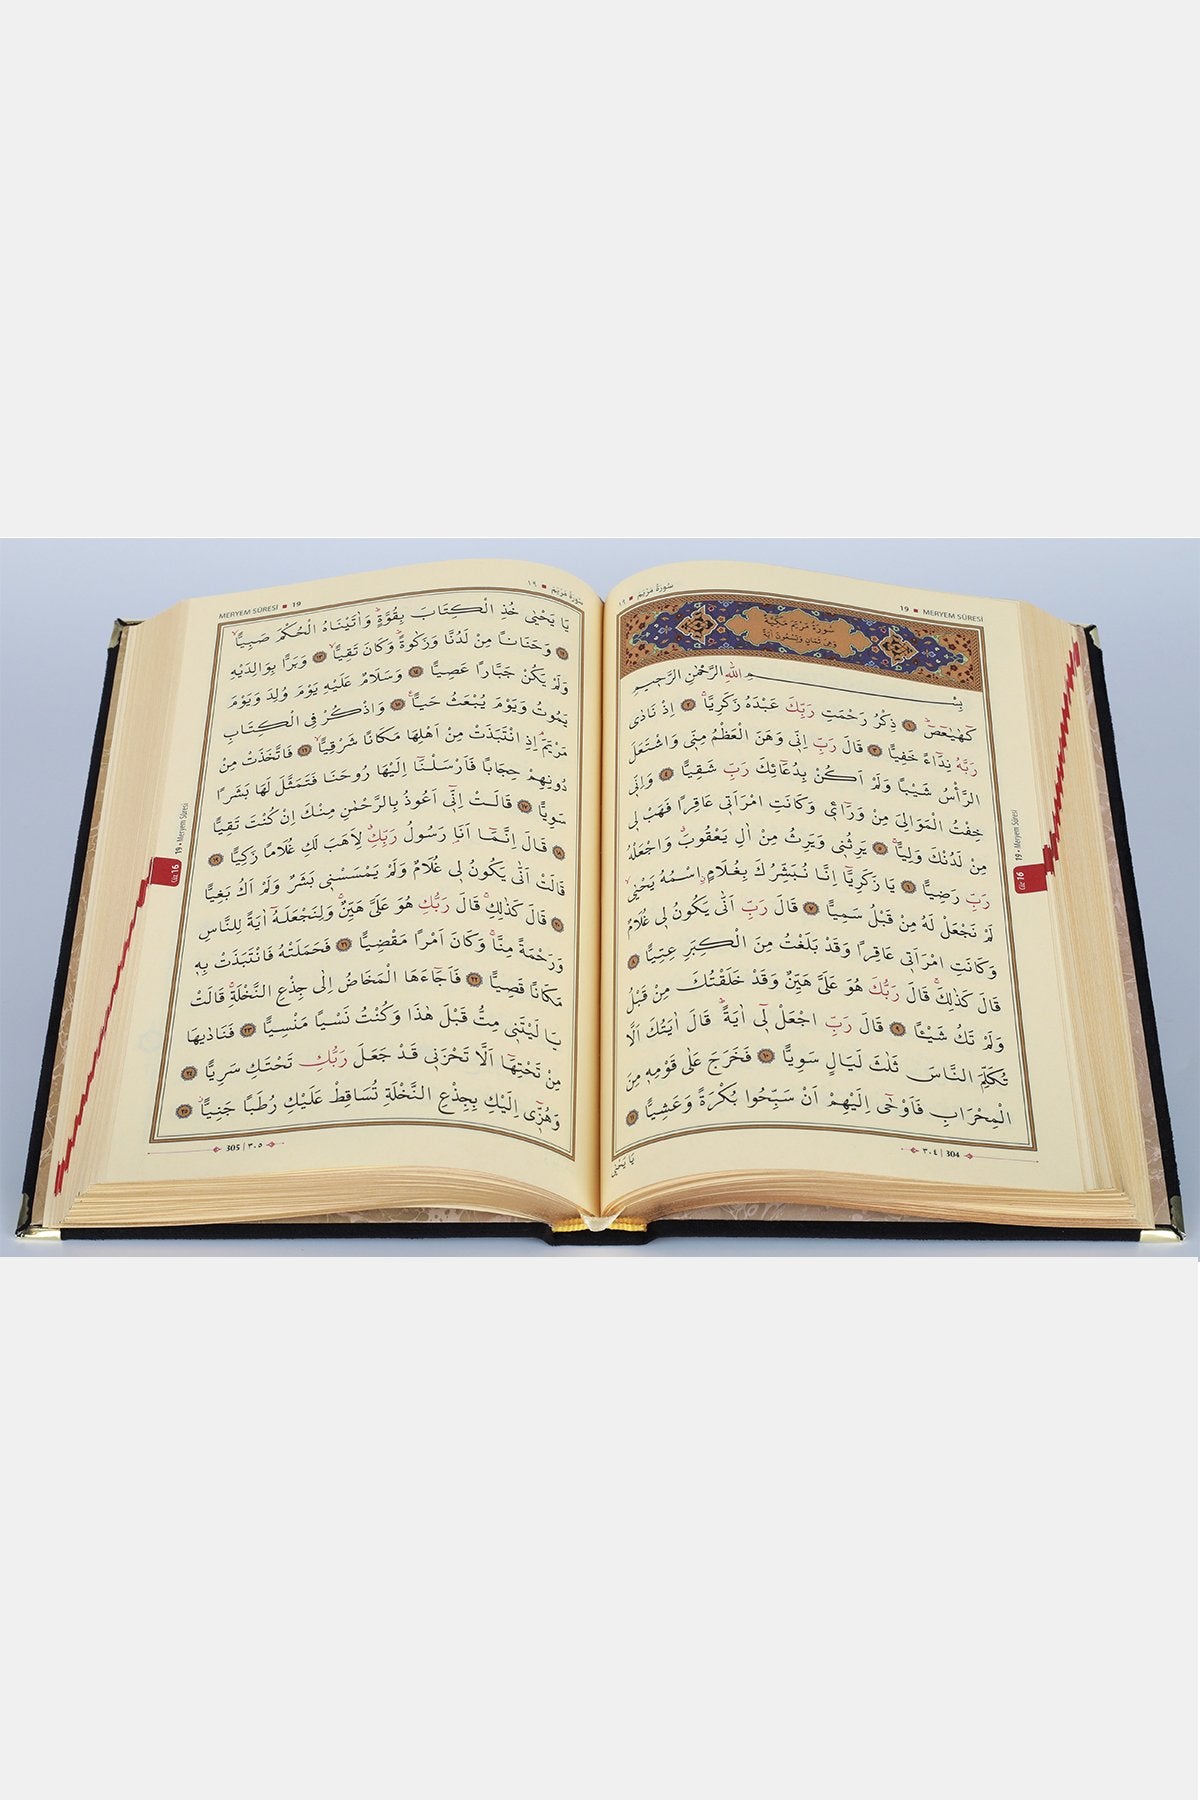 19 ▪ MERYEM SÛRESİ
سُورَةُ مَرْيَمَ ▪ ١٩
سُورَةُ مَرْيَمَ مَكِّيَّةٌ
وَهِيَ ثَمَانٍ وَتِسْعُونَ اٰيَةً
بِسْمِ اللّٰهِ الرَّحْمٰنِ الرَّحٖيمِ
كٓهٰيٰعٓصٓ ﴿١﴾ ذِكْرُ رَحْمَتِ رَبِّكَ عَبْدَهُ زَكَرِيَّا ﴿٢﴾ اِذْ نَادٰى
رَبَّهُ نِدَٓاءً خَفِيًّا ﴿٣﴾ قَالَ رَبِّ اِنّٖي وَهَنَ الْعَظْمُ مِنّٖي وَاشْتَعَلَ
الرَّأْسُ شَيْبًا وَلَمْ اَكُنْ بِدُعَٓائِكَ رَبِّ شَقِيًّا ﴿٤﴾ وَاِنّٖي
خِفْتُ الْمَوَالِيَ مِنْ وَرَٓاءٖي وَكَانَتِ امْرَاَتٖي عَاقِرًا فَهَبْ لٖي
مِنْ لَدُنْكَ وَلِيًّا ﴿٥﴾ يَرِثُنٖي وَيَرِثُ مِنْ اٰلِ يَعْقُوبَ وَاجْعَلْهُ
رَبِّ رَضِيًّا ﴿٦﴾ يَا زَكَرِيَّٓا اِنَّا نُبَشِّرُكَ بِغُلَامٍ اسْمُهُ يَحْيٰى
لَمْ نَجْعَلْ لَهُ مِنْ قَبْلُ سَمِيًّا ﴿٧﴾ قَالَ رَبِّ اَنّٰى يَكُونُ لٖي غُلَامٌ
وَكَانَتِ امْرَاَتٖي عَاقِرًا وَقَدْ بَلَغْتُ مِنَ الْكِبَرِ عِتِيًّا ﴿٨﴾
قَالَ كَذٰلِكَ قَالَ رَبُّكَ هُوَ عَلَيَّ هَيِّنٌ وَقَدْ خَلَقْتُكَ مِنْ قَبْلُ
وَلَمْ تَكُ شَيْـًٔا ﴿٩﴾ قَالَ رَبِّ اجْعَلْ لٖٓي اٰيَةً قَالَ اٰيَتُكَ اَلَّا
تُكَلِّمَ النَّاسَ ثَلٰثَ لَيَالٍ سَوِيًّا ﴿١٠﴾ فَخَرَجَ عَلٰى قَوْمِهٖ مِنَ
الْمِحْرَابِ فَاَوْحٰٓى اِلَيْهِمْ اَنْ سَبِّحُوا بُكْرَةً وَعَشِيًّا ﴿١١﴾
304 | ٣٠٤
يَا يَحْيٰى
Cüz 16
19 • Meryem Sûresi
سُورَةُ مَرْيَمَ ▪ ١٩
MERYEM SÛRESİ ▪ 19
يَا يَحْيٰى خُذِ الْكِتَابَ بِقُوَّةٍ وَاٰتَيْنَاهُ الْحُكْمَ صَبِيًّا
﴿١٢﴾ وَحَنَانًا مِنْ لَدُنَّا وَزَكٰوةً وَكَانَ تَقِيًّا ﴿١٣﴾ وَبَرًّا بِوَالِدَيْهِ
وَلَمْ يَكُنْ جَبَّارًا عَصِيًّا ﴿١٤﴾ وَسَلَامٌ عَلَيْهِ يَوْمَ وُلِدَ وَيَوْمَ
يَمُوتُ وَيَوْمَ يُبْعَثُ حَيًّا ﴿١٥﴾ وَاذْكُرْ فِي الْكِتَابِ
مَرْيَمَ اِذِ انْتَبَذَتْ مِنْ اَهْلِهَا مَكَانًا شَرْقِيًّا ﴿١٦﴾ فَاتَّخَذَتْ مِنْ
دُونِهِمْ حِجَابًا فَاَرْسَلْنَٓا اِلَيْهَا رُوحَنَا فَتَمَثَّلَ لَهَا بَشَرًا
سَوِيًّا ﴿١٧﴾ قَالَتْ اِنّٖٓي اَعُوذُ بِالرَّحْمٰنِ مِنْكَ اِنْ كُنْتَ تَقِيًّا
﴿١٨﴾ قَالَ اِنَّمَٓا اَنَا رَسُولُ رَبِّكِ لِاَهَبَ لَكِ غُلَامًا زَكِيًّا ﴿١٩﴾
قَالَتْ اَنّٰى يَكُونُ لٖي غُلَامٌ وَلَمْ يَمْسَسْنٖي بَشَرٌ وَلَمْ اَكُ بَغِيًّا
﴿٢٠﴾ قَالَ كَذٰلِكِ قَالَ رَبُّكِ هُوَ عَلَيَّ هَيِّنٌ وَلِنَجْعَلَهُٓ اٰيَةً لِلنَّاسِ
وَرَحْمَةً مِنَّا وَكَانَ اَمْرًا مَقْضِيًّا ﴿٢١﴾ فَحَمَلَتْهُ فَانْتَبَذَتْ بِهٖ
مَكَانًا قَصِيًّا ﴿٢٢﴾ فَاَجَٓاءَهَا الْمَخَاضُ اِلٰى جِذْعِ النَّخْلَةِ قَالَتْ
يَا لَيْتَنٖي مِتُّ قَبْلَ هٰذَا وَكُنْتُ نَسْيًا مَنْسِيًّا ﴿٢٣﴾ فَنَادٰيهَا
مِنْ تَحْتِهَٓا اَلَّا تَحْزَنٖي قَدْ جَعَلَ رَبُّكِ تَحْتَكِ سَرِيًّا ﴿٢٤﴾
وَهُزّٖٓي اِلَيْكِ بِجِذْعِ النَّخْلَةِ تُسَاقِطْ عَلَيْكِ رُطَبًا جَنِيًّا ﴿٢٥﴾
305 | ٣٠٥
Cüz 16
19 • Meryem Sûresi